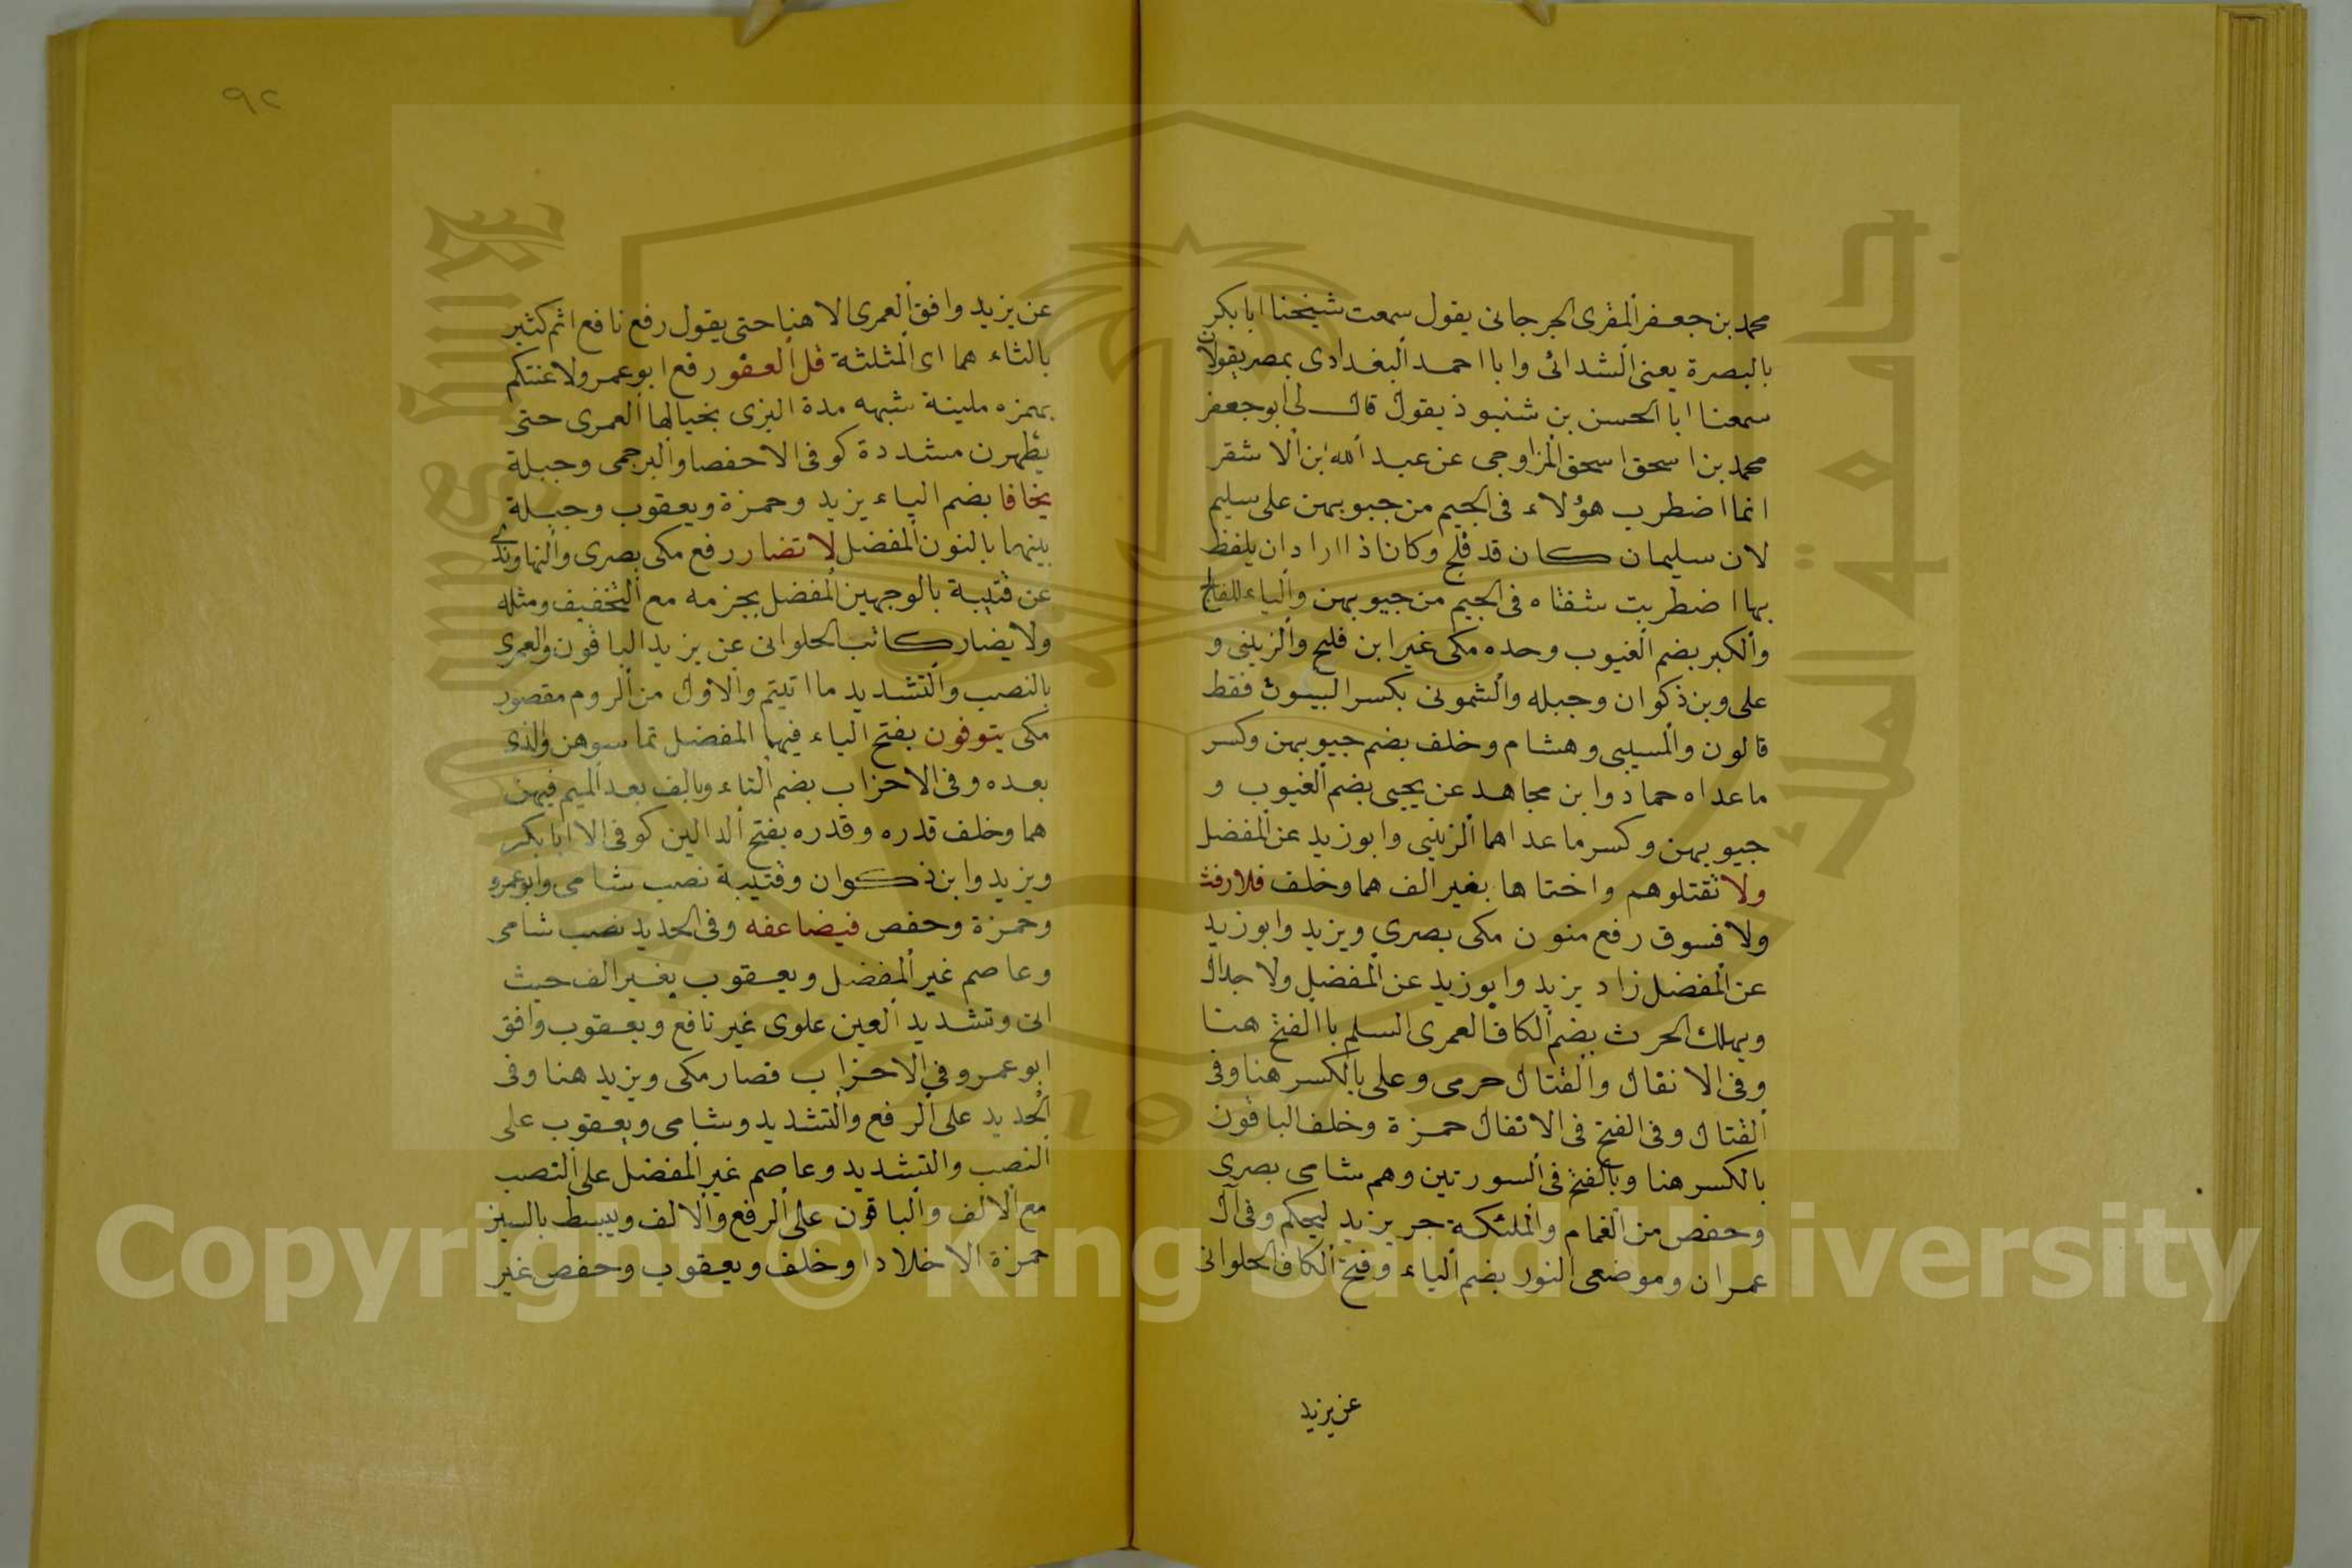 محمد بن جعفر المقرى الجرجانى يقول سمعت شيخنا ابا بكر
بالبصرة يعنى الشذائى وابا احمد البغدادى بمصر يقولان
سمعنا ابا الحسن بن شنبوذ يقول قال لى ابو جعفر
محمد بن اسحق اسحق المزاوجى عن عبد الله بن الاشقر
انما اضطرب هؤلاء فى الجيم من جيوبهن على سليم
لان سليمان كان قد فلج وكان اذا اراد ان يلفظ
بها اضطربت شفتاه فى الجيم من جيوبهن والياء للفالج
والكبر بضم الغيوب وحده مكى غير ابن فليح والزينى و
على وبن ذكوان وجبله والشمونى بكسر البيوت فقط
قالون والمسيبى وهشام وخلف بضم جيوبهن وكسر
ما عداه حماد وابن مجاهد عن يحيى بضم الغيوب و
جيوبهن وكسر ما عداهما الزينبى وابو زيد عن المفضل
ولا تقتلوهم واختاها بغير الف هما وخلف فلا رفث
ولا فسوق رفع منون مكى بصرى ويزيد وابو زيد
عن المفضل زاد يزيد وابو زيد عن المفضل ولا جدال
ويهلك الحرث بضم الكاف العمرى السلم با الفتح هنا
وفى الانفال والقتال حرمى وعلى بالكسر هنا وفى
القتال وفى الفتح فى الانفال حمزة وخلف الباقون
بالكسر هنا وبالفتح فى السورتين وهم شامى بصرى
وحفص من الغمام والملئكة جر يزيد ليحكم وفى آل
عمران وموضعى النور بضم الياء وفتح الكاف الحلوانى
عن يزيد
٩٢
عن يزيد وافق العمرى الا هنا حتى يقول رفع نافع اثم كثير
بالثاء هما اى المثلثة قل العفو رفع ابو عمرو لا عنتكم
بهمزه ملينة شبهه مدة البزى بخيالها العمرى حتى
يطهرن مشددة كوفى الا حفصا والبرجمى وجبلة
يخافا بضم الياء يزيد وحمزة ويعقوب وجبلة
بينهما بالنون المفضل لا تضار رفع مكى بصرى والنهاوندى
عن قتيبة بالوجهين المفضل بجزمه مع التخفيف ومثله
ولا يضار كاتب الحلوانى عن يزيد الباقون والعمرى
بالنصب والتشديد ما اتيتم والاول من الروم مقصور
مكى يتوفون بفتح الياء فيهما المفضل تماسوهن والذى
بعده وفى الاحزاب بضم التاء وبالف بعد الميم فيهن
هما وخلف قدره وقدره بفتح الدالين كوفى الا ابا بكر
ويزيد وابن ذكوان وقتيبة نصب شامى وابو عمرو
وحمزة وحفص فيضاعفه وفى الحديد نصب شامى
وعاصم غير المفضل ويعقوب بغير الف حيث
اتى وتشديد العين علوى غير نافع ويعقوب وافق
ابو عمرو فى الاحزاب فصار مكى ويزيد هنا وفى
الحديد على الرفع والتشديد وشامى ويعقوب على
النصب والتشديد وعاصم غير المفضل على النصب
مع الالف والباقون على الرفع والالف ويبسط بالسين
حمزة الا خلادا وخلف ويعقوب وحفص غير
جامعة الملك سعود
1957
Copyright © King Saud University